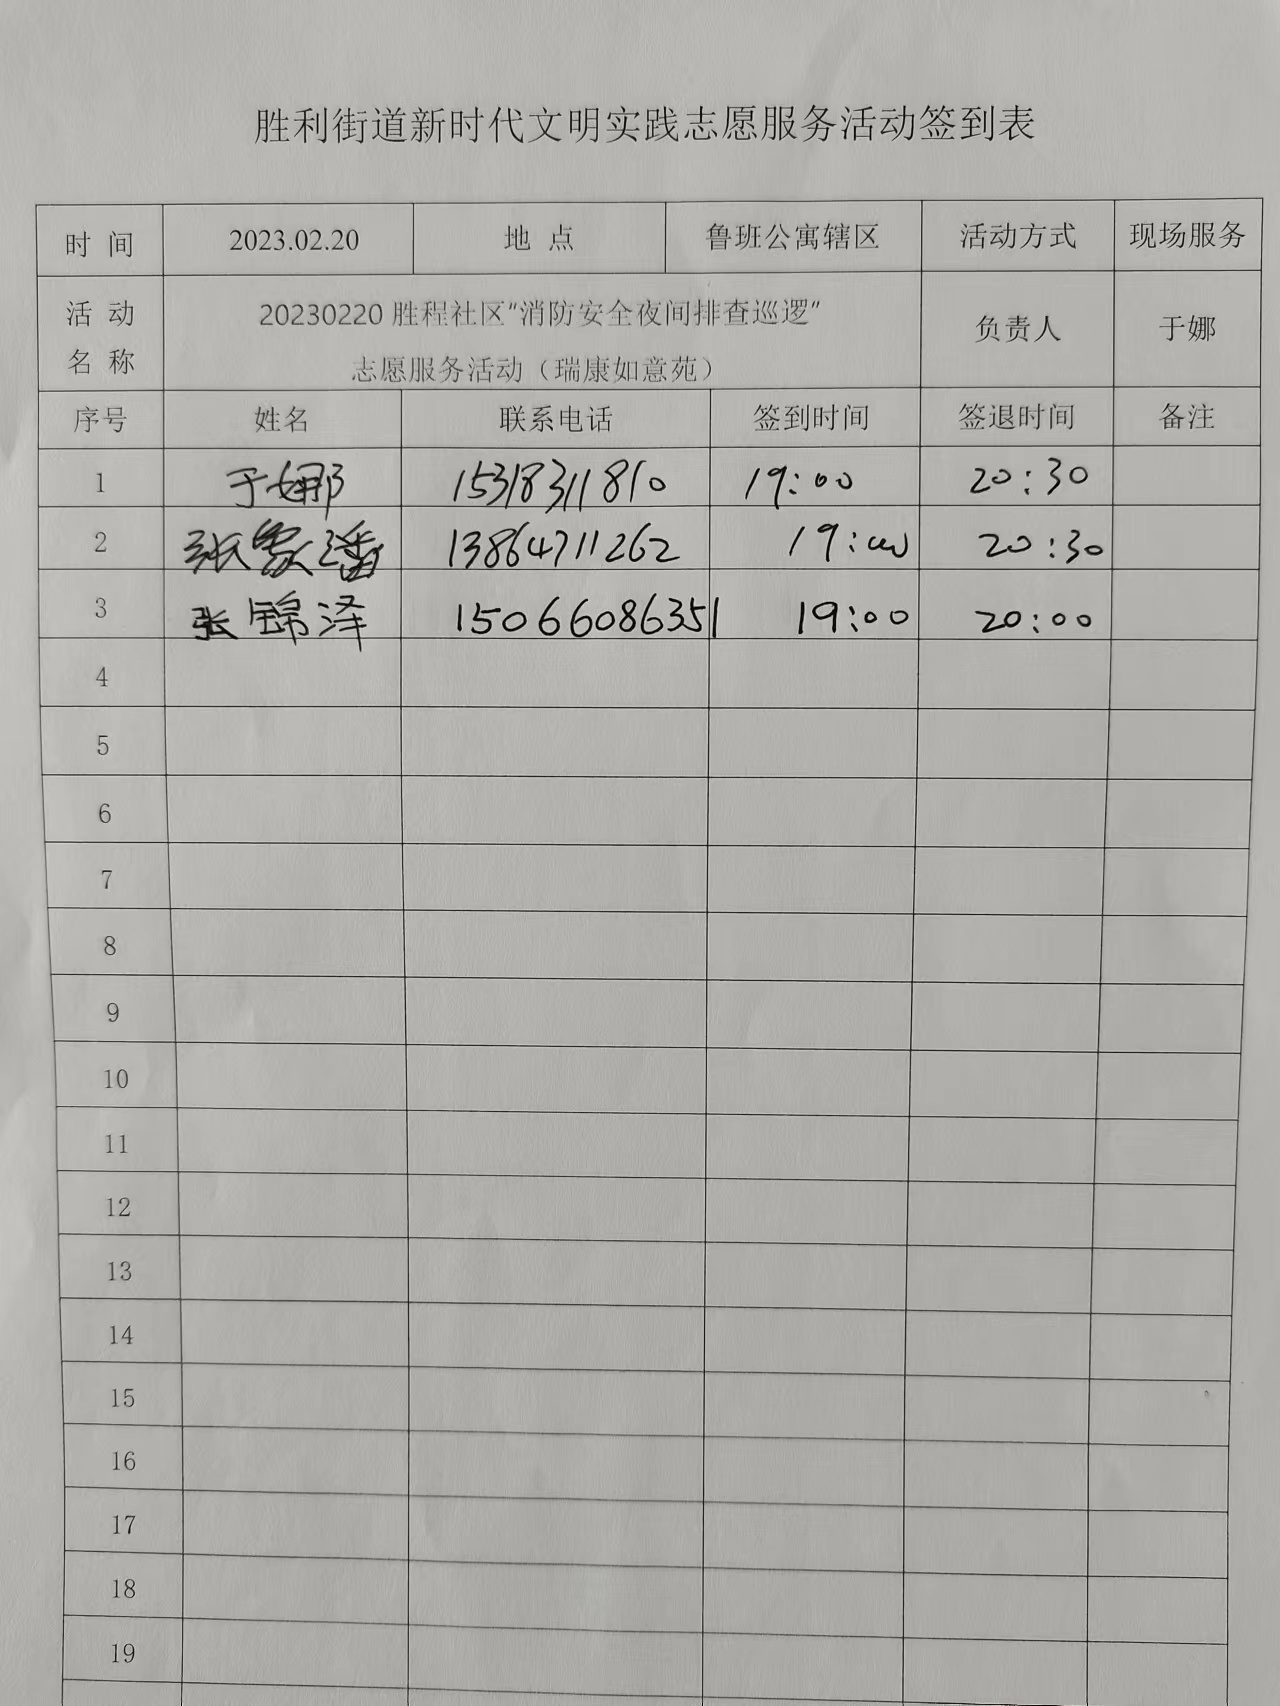 胜利街道新时代文明实践志愿服务活动签到表
时 间 2023.02.20 地 点 鲁班公寓辖区 活动方式 现场服务
活 动 名 称 20230220 胜程社区“消防安全夜间排查巡逻” 负责人 于娜
志愿服务活动（瑞康如意苑）
序号 姓名 联系电话 签到时间 签退时间 备注
1 于娜 15318311810 19:00 20:30
2 张 13864711262 19:00 20:30
3 张锦泽 15066086351 19:00 20:00
4
5
6
7
8
9
10
11
12
13
14
15
16
17
18
19